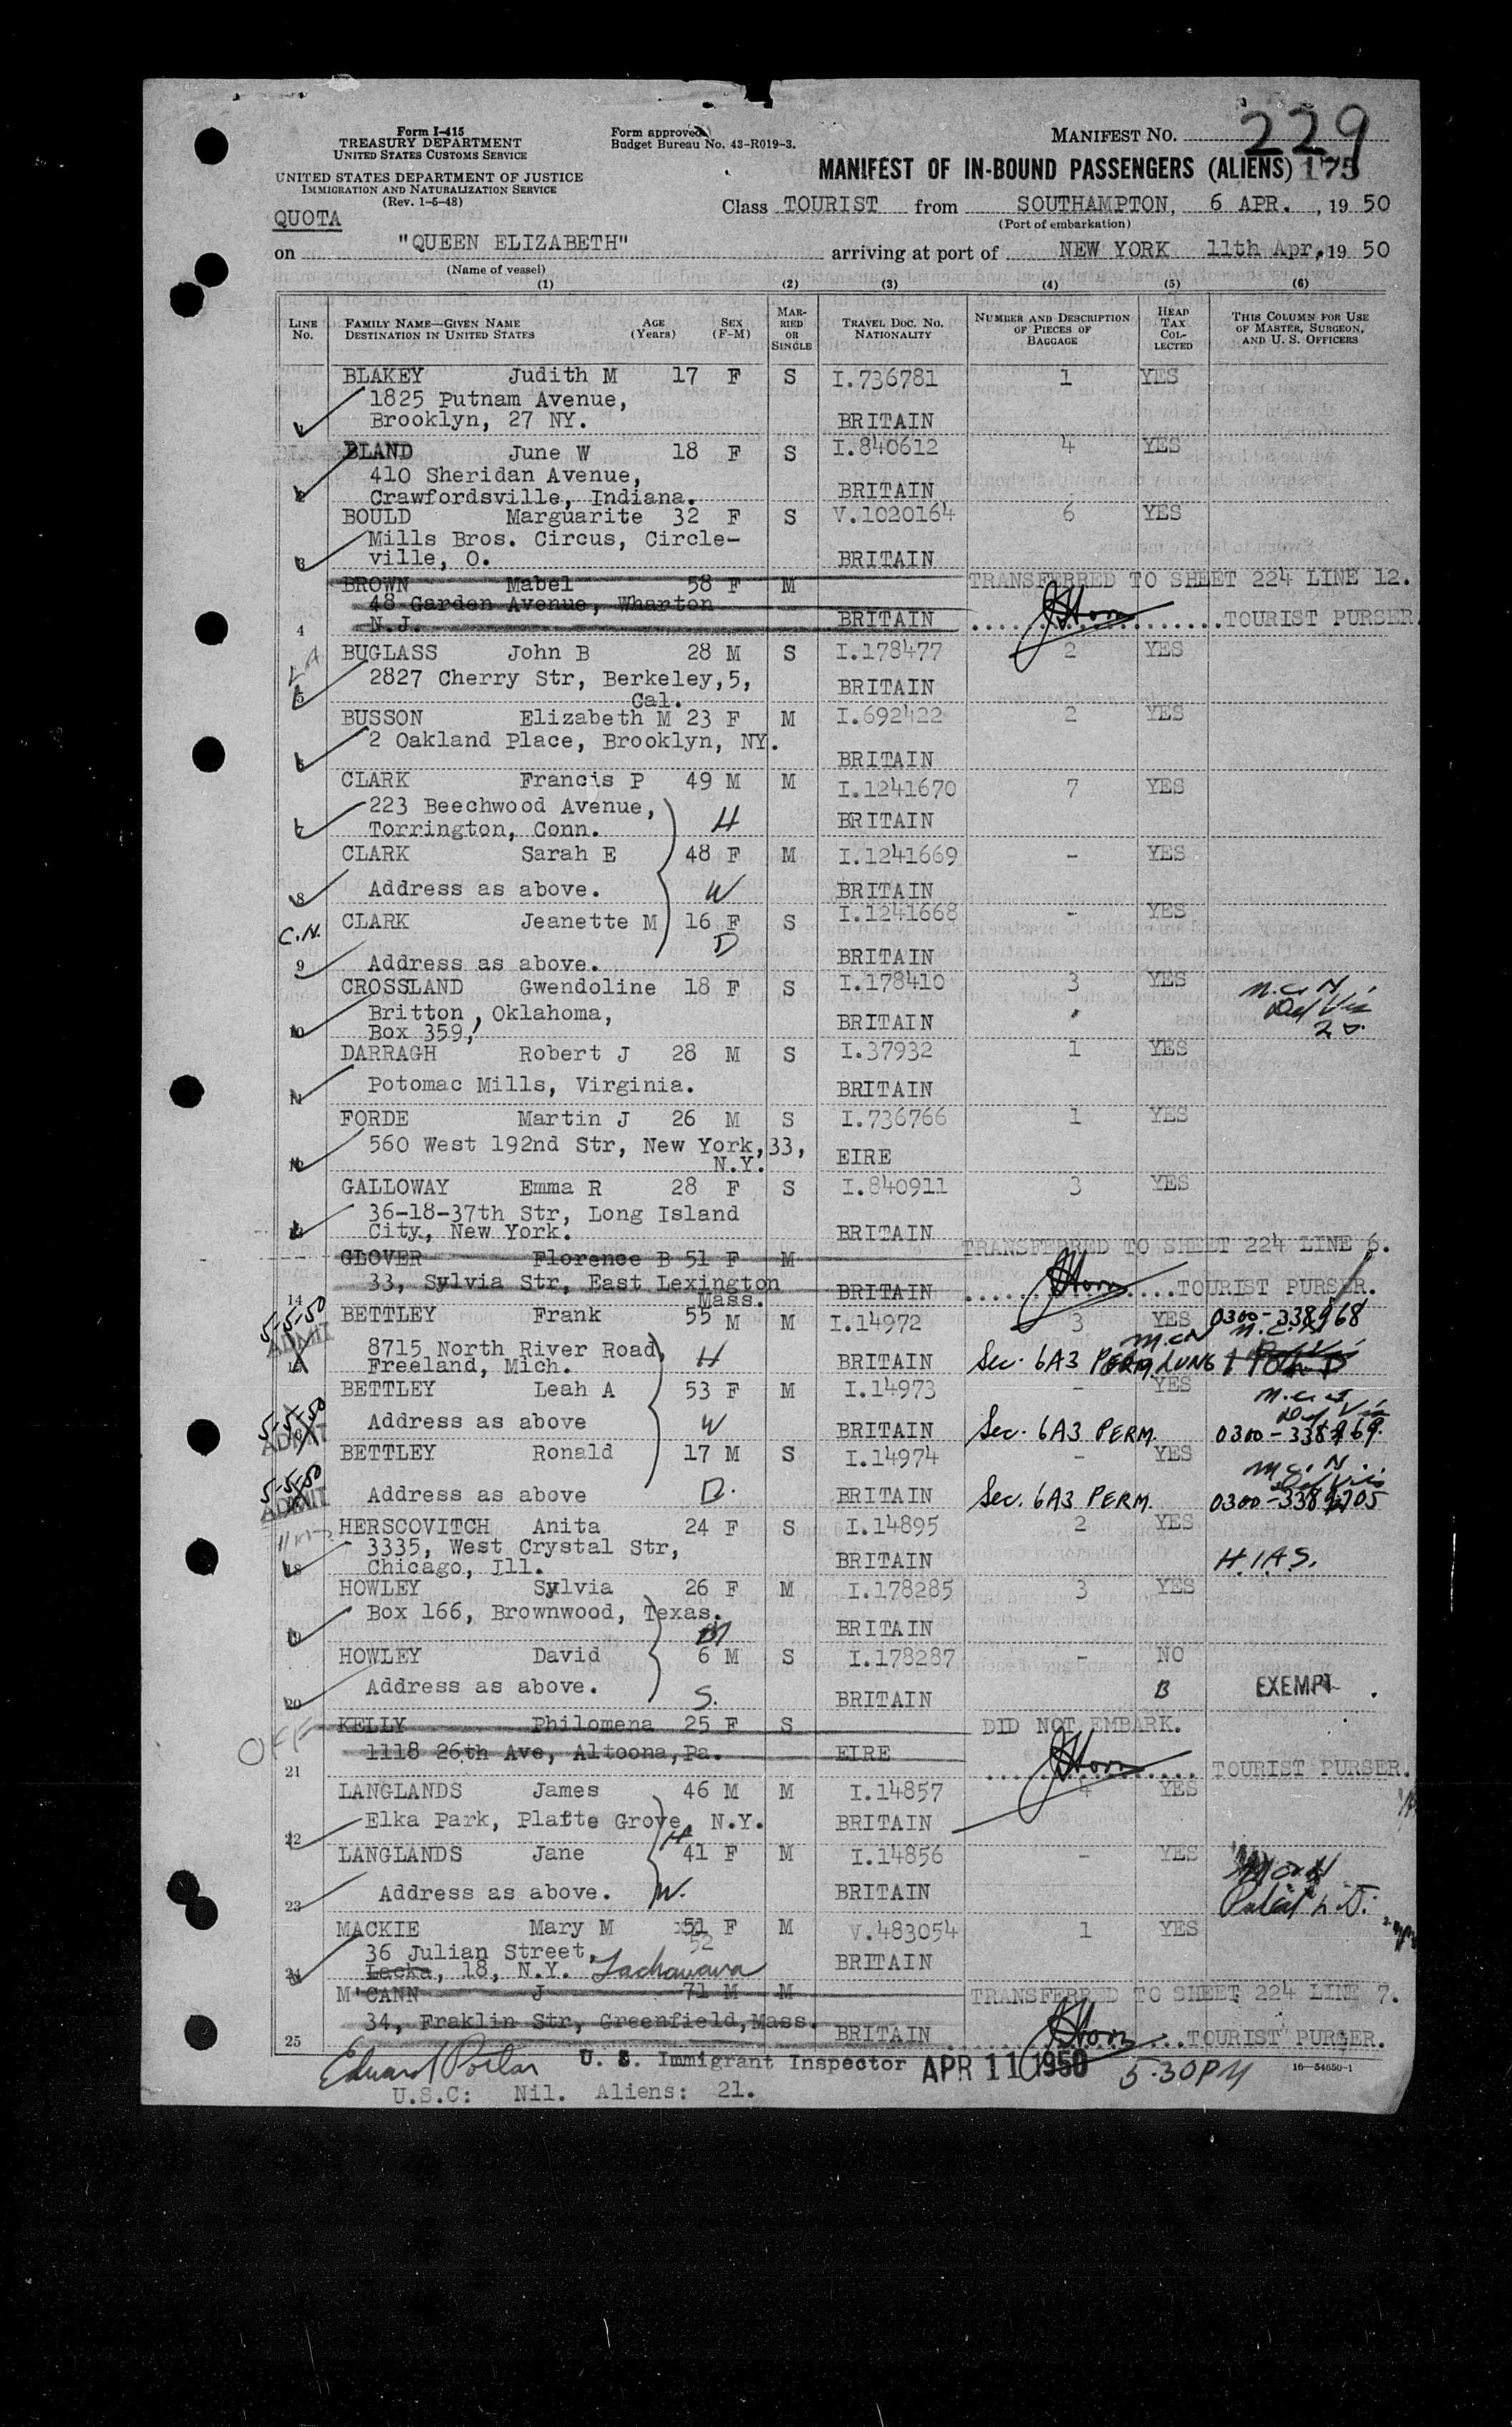 229
Form I-415
TREASURY DEPARTMENT
UNITED STATES CUSTOMS SERVICE
UNITED STATES DEPARTMENT OF JUSTICE
IMMIGRATION AND NATURALIZATION SERVICE
(Rev. 1-5-48)
Form approved
Budget Bureau No. 43-R019-3.
MANIFEST No.
MANIFEST OF IN-BOUND PASSENGERS (ALIENS) 175
QUOTA
Class TOURIST from SOUTHAMPTON, 6 APR. , 19 50
(Port of embarkation)
on "QUEEN ELIZABETH" arriving at port of NEW YORK 11th Apr. 19 50
(Name of vessel)
(1) (2) (3) (4) (5) (6)
LINE No. FAMILY NAME—GIVEN NAME DESTINATION IN UNITED STATES AGE (Years) SEX (F-M) MARRIED OR SINGLE TRAVEL DOC. No. NATIONALITY NUMBER AND DESCRIPTION OF PIECES OF BAGGAGE HEAD TAX COLLECTED THIS COLUMN FOR USE OF MASTER, SURGEON, AND U. S. OFFICERS
BLAKEY Judith M 17 F S I.736781 1 YES
1825 Putnam Avenue,
Brooklyn, 27 NY. BRITAIN
BLAND June W 18 F S I.840612 4 YES
410 Sheridan Avenue,
Crawfordsville, Indiana. BRITAIN
BOULD Marguarite 32 F S V.1020164 6 YES
Mills Bros. Circus, Circle-
3 ville, O. BRITAIN
BROWN Mabel 58 F M TRANSFERRED TO SHEET 224 LINE 12.
48 Garden Avenue, Wharton
4 N.J. BRITAIN TOURIST PURSER
BUGLASS John B 28 M S I.178477 2 YES
2827 Cherry Str, Berkeley,5, BRITAIN
5 Cal.
BUSSON Elizabeth M 23 F M I.692422 2 YES
2 Oakland Place, Brooklyn, NY.
6 BRITAIN
CLARK Francis P 49 M M I.1241670 7 YES
223 Beechwood Avenue, H
Torrington, Conn. BRITAIN
CLARK Sarah E 48 F M I.1241669 - YES
8 Address as above. W BRITAIN
C.N. CLARK Jeanette M 16 F S I.1241668 - YES
D
9 Address as above. BRITAIN
CROSSLAND Gwendoline 18 F S I.178410 3 YES
Britton , Oklahoma,
10 Box 359, BRITAIN
DARRAGH Robert J 28 M S I.37932 1 YES
11 Potomac Mills, Virginia. BRITAIN
FORDE Martin J 26 M S I.736766 1 YES
560 West 192nd Str, New York,33,
12 N.Y. EIRE
GALLOWAY Emma R 28 F S I.840911 3 YES
36-18-37th Str, Long Island
City, New York. BRITAIN
GLOVER Florence B 51 F M TRANSFERRED TO SHEET 224 LINE 6.
33, Sylvia Str, East Lexington BRITAIN TOURIST PURSER.
14 Mass.
5-5-50 BETTLEY Frank 55 M M I.14972 3 YES 0300-338968
ADMIT 8715 North River Road H
Freeland, Mich. BRITAIN Sec. 6A3 PERM.
BETTLEY Leah A 53 F M I.14973 - YES
5-5-50
ADMIT Address as above W BRITAIN Sec. 6A3 PERM.
BETTLEY Ronald 17 M S I.14974 - YES
5-5-50
ADMIT Address as above D. BRITAIN Sec. 6A3 PERM.
HERSCOVITCH Anita 24 F S I.14895 2 YES
3335, West Crystal Str,
18 Chicago, Ill. BRITAIN H.I.A.S.
HOWLEY Sylvia 26 F M I.178285 3 YES
Box 166, Brownwood, Texas.
19 M BRITAIN
HOWLEY David 6 M S I.178287 - NO
20 Address as above. S. BRITAIN B EXEMPT
OFF KELLY Philomena 25 F S DID NOT EMBARK.
1118 26th Ave, Altoona,Pa. EIRE
21 TOURIST PURSER.
LANGLANDS James 46 M M I.14857 4 YES
22 Elka Park, Platte Grove, N.Y. BRITAIN
H
LANGLANDS Jane 41 F M I.14856 - YES
23 Address as above. W. BRITAIN
MACKIE Mary M 51 F M V.483054 1 YES
52
36 Julian Street,
24 Lacka, 18, N.Y. Lackawana BRITAIN
M'CANN J 71 M M TRANSFERRED TO SHEET 224 LINE 7.
34, Fraklin Str, Greenfield,Mass.
25 BRITAIN TOURIST PURSER.
U. S. Immigrant Inspector APR 11 1950 5.30PM 16—54650-1
U.S.C: Nil. Aliens: 21.